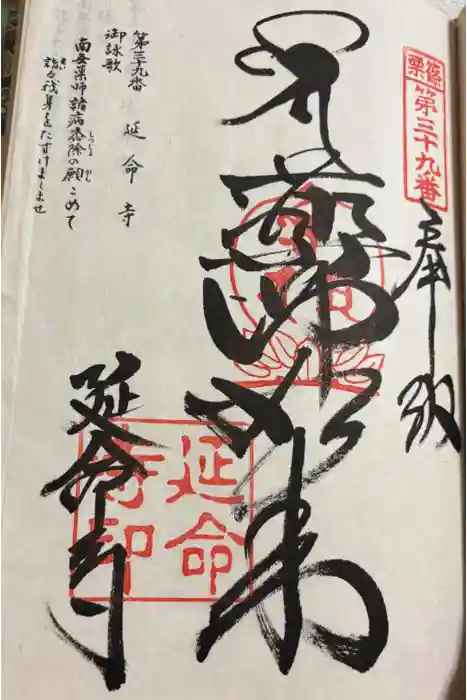 篠栗
第三十九番
奉納
薬師如来
第三九番 延命寺
御詠歌
南無薬師諸病悉除の願こめて
しつじょ がん
詣る我身をたすけましませ
延命寺
延命寺印